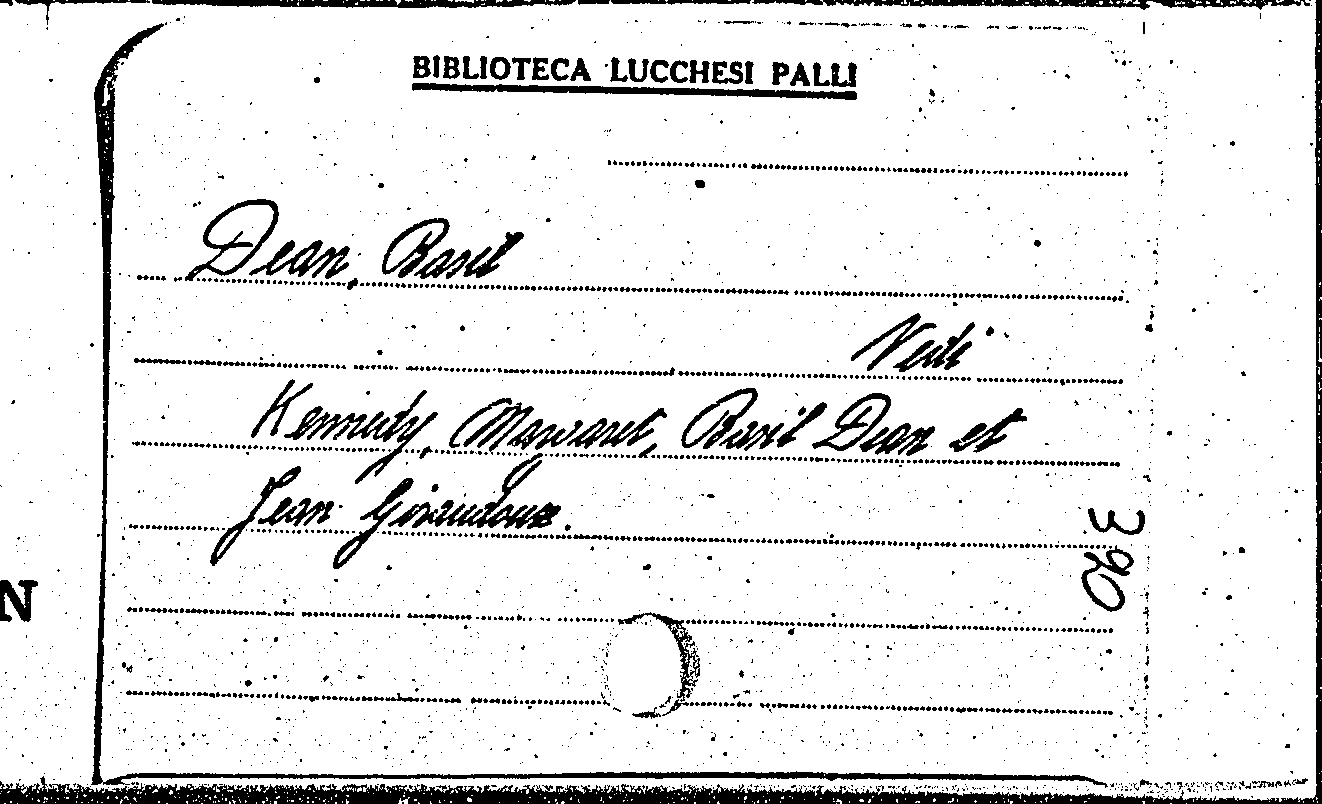 BIBLIOTECA LUCCHESI PALLI
Dean, Basil
Vedi
Kennedy, Margaret, Basil Dean et
Jean Giraudoux.
390
N